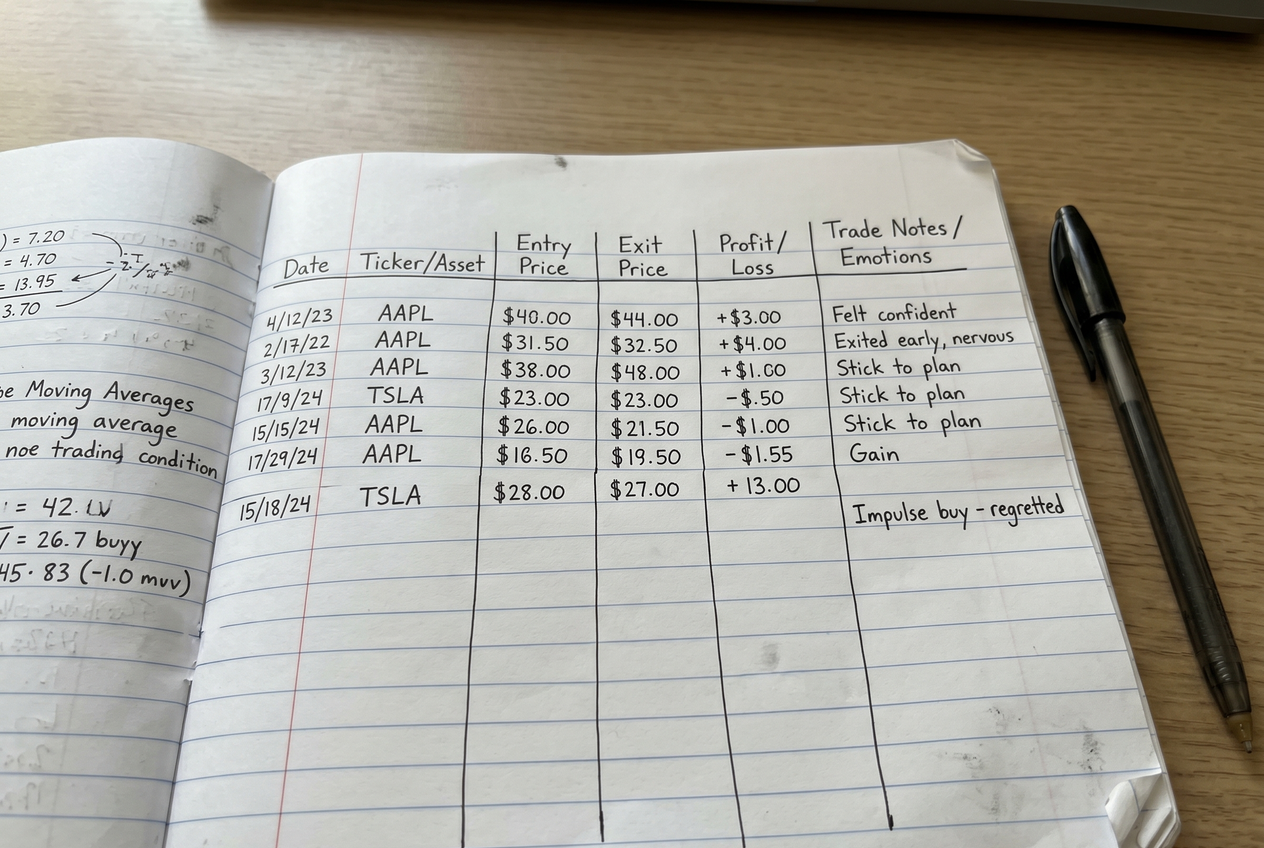 ) = 7.20
= 4.70
= 13.95
3.70
be Moving Averages
moving average
noe trading condition
= 42.
= 26.7 buyy
45.83 (-1.0 mvv)
Date Ticker/Asset Entry Price Exit Price Profit/Loss Trade Notes/Emotions
4/12/23 AAPL $40.00 $44.00 +$3.00 Felt confident
2/17/22 AAPL $31.50 $32.50 +$4.00 Exited early, nervous
3/12/23 AAPL $38.00 $48.00 +$1.00 Stick to plan
17/9/24 TSLA $23.00 $23.00 -$.50 Stick to plan
15/15/24 AAPL $26.00 $21.50 -$1.00 Stick to plan
17/29/24 AAPL $16.50 $19.50 -$1.55 Gain
15/18/24 TSLA $28.00 $27.00 +13.00 Impulse buy - regretted